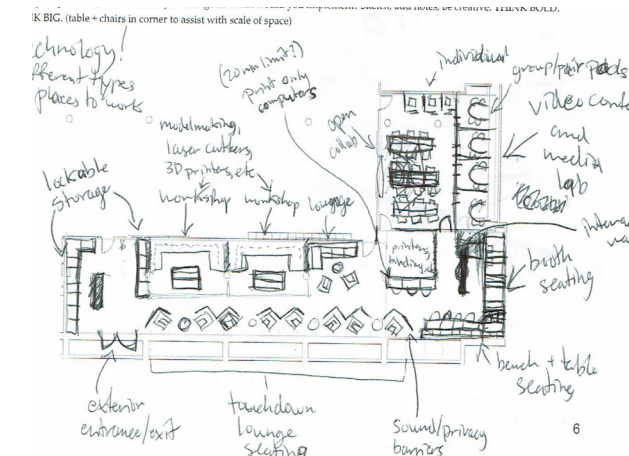 IK BIG. (table + chairs in corner to assist with scale of space)
chnology!
fferent types
places to work
(20 min limit?)
print only
computers
individual
group/pair pods
video conf
and
media
lab
open
collab
modelmaking,
laser cutters,
3D printers, etc
workshop
workshop
lounge
lockable
storage
printers,
binding, etc
booth
seating
bench + table
seating
exterior
entrance/exit
touchdown
lounge
seating
sound/privacy
barriers
6